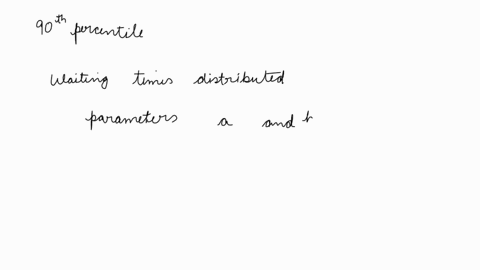 90th percentile
Waiting times distributed
parameters a and